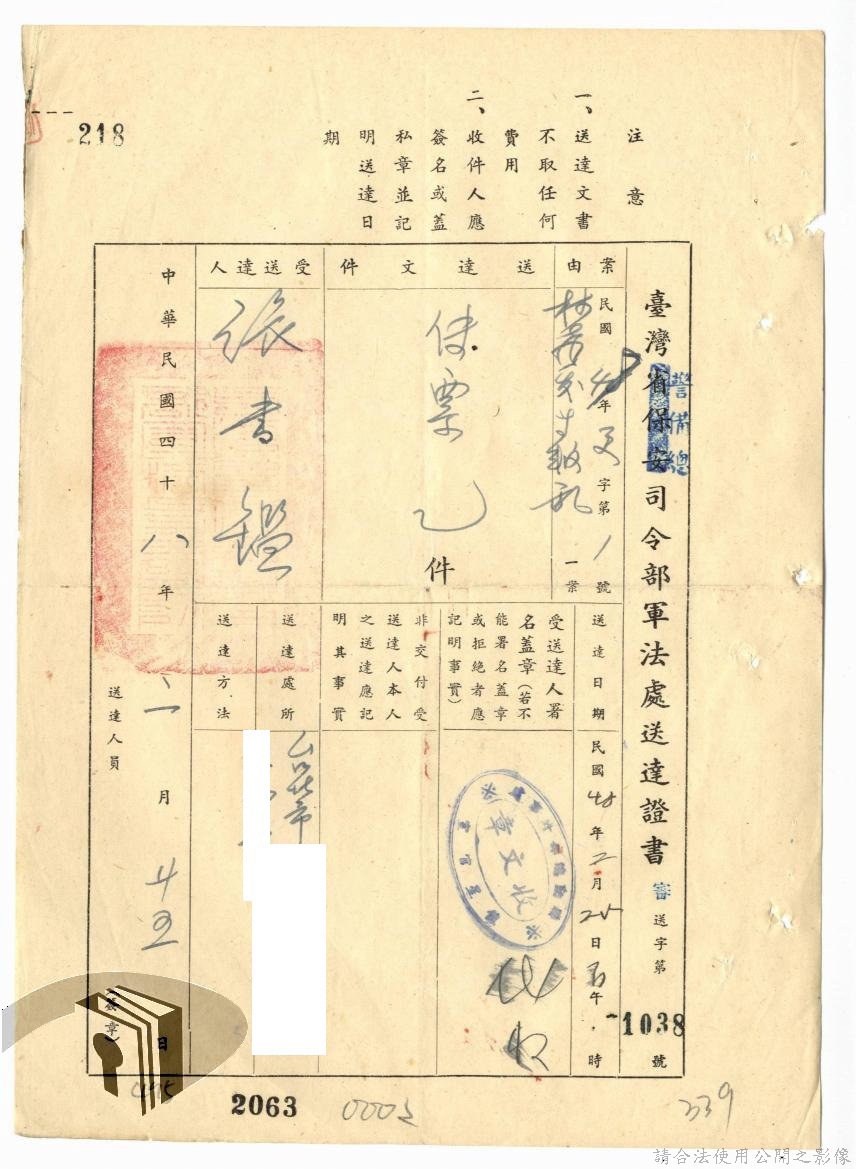 218
注意
一、送達文書
不取任何
費用
二、收件人應
簽名或蓋
私章並記
明送達日
期
臺灣省保安司令部軍法處送達證書 審 送字第1038號
警備總
案由
民國48年 字第1號
一案
送達文件
傳票乙件
受送達人
張書鑑
送達日期
民國48年2月25日 午 時
受送達人署
名蓋章(若不
能署名蓋章
或拒絕者應
記明事實)
收文章
代收
非交付受
送達人本人
之送達應記
明其事實
送達處所
送達方法
中華民國四十八年二月廿五日
送達人員
(簽章)
2063
339
請合法使用公開之影像